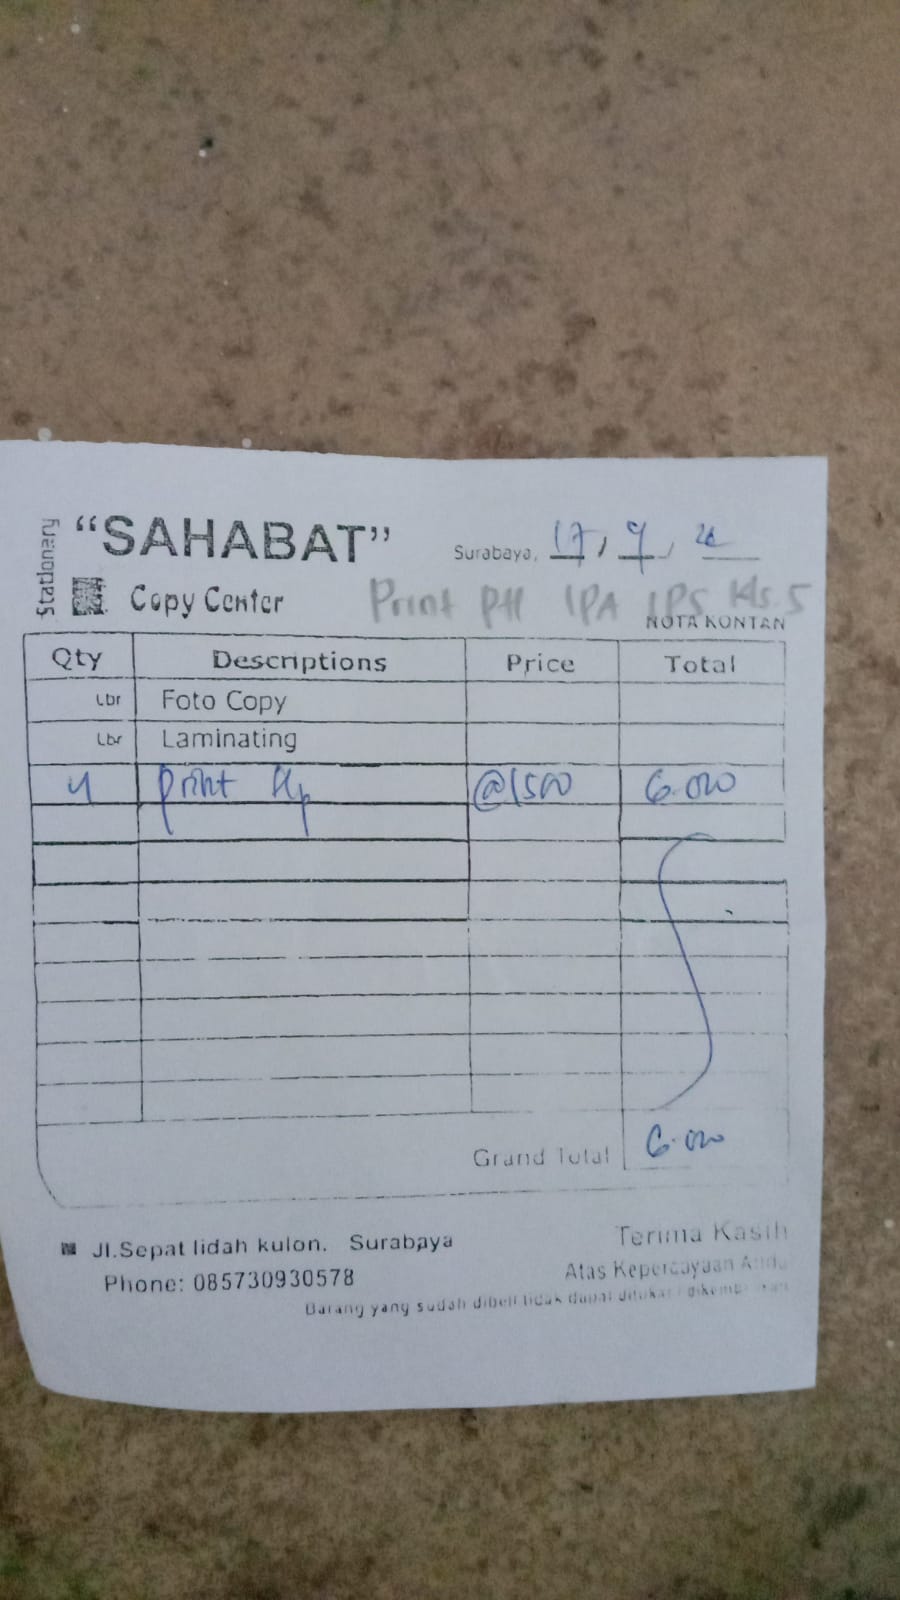 Stationary
"SAHABAT"
Surabaya, 17, 9,
Copy Center
Print PH IPA IPS Kls. 5
NOTA KONTAN
Qty Descriptions Price Total
Lbr Foto Copy
Lbr Laminating
4 print Hp @1500 6.000
Grand Total 6.000
Jl.Sepat lidah kulon. Surabaya
Terima Kasih
Phone: 085730930578
Atas Kepercayaan Anda
Barang yang sudah dibeli tidak dapat ditukar / dikembalikan